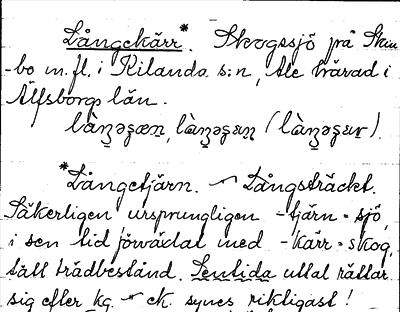 Långekärr*. Skogssjö på Skin-
-bo m.fl. i Kilanda s:n, Ale härad i
Älfsborgs län.
*Långetjärn. ~ Långsträckt.
Säkerligen ursprungligen -tjärn = sjö,
i sen tid förväxlat med -kärr = skog,
tätt trädbestånd. Sentida uttal rättar
sig efter kg. ~ ek. synes riktigast!